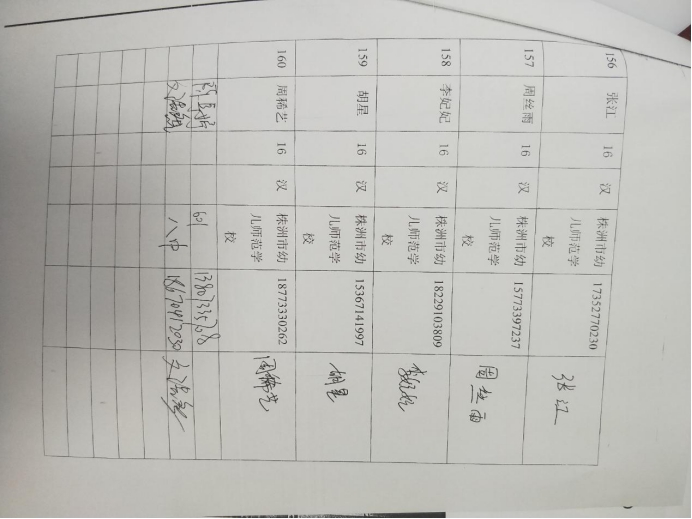 156 张江 16 汉 株洲市幼儿师范学校 17352770230 张江
157 周丝雨 16 汉 株洲市幼儿师范学校 15773397237 周丝雨
158 李妃妃 16 汉 株洲市幼儿师范学校 18229103809 李妃妃
159 胡星 16 汉 株洲市幼儿师范学校 15367141997 胡星
160 周稀艺 16 汉 株洲市幼儿师范学校 18773330262 周稀艺
601 13807335708
八中 18670412030